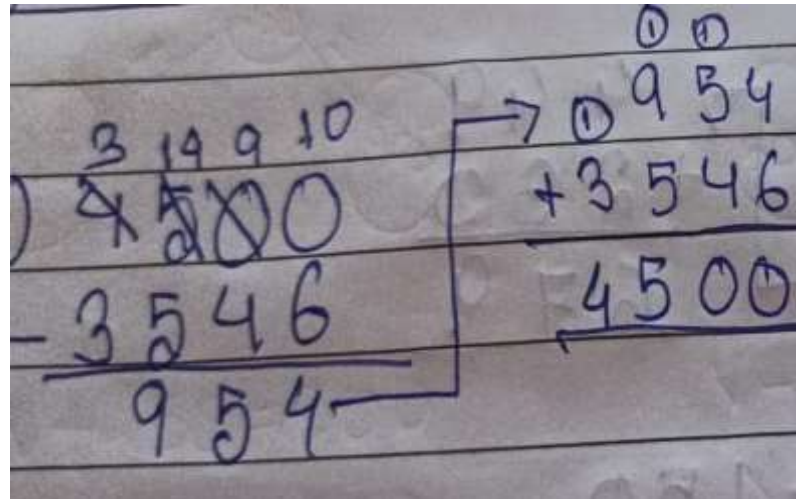 3 14 9 10
4500
- 3546
954
① ①
① 954
+ 3546
4500